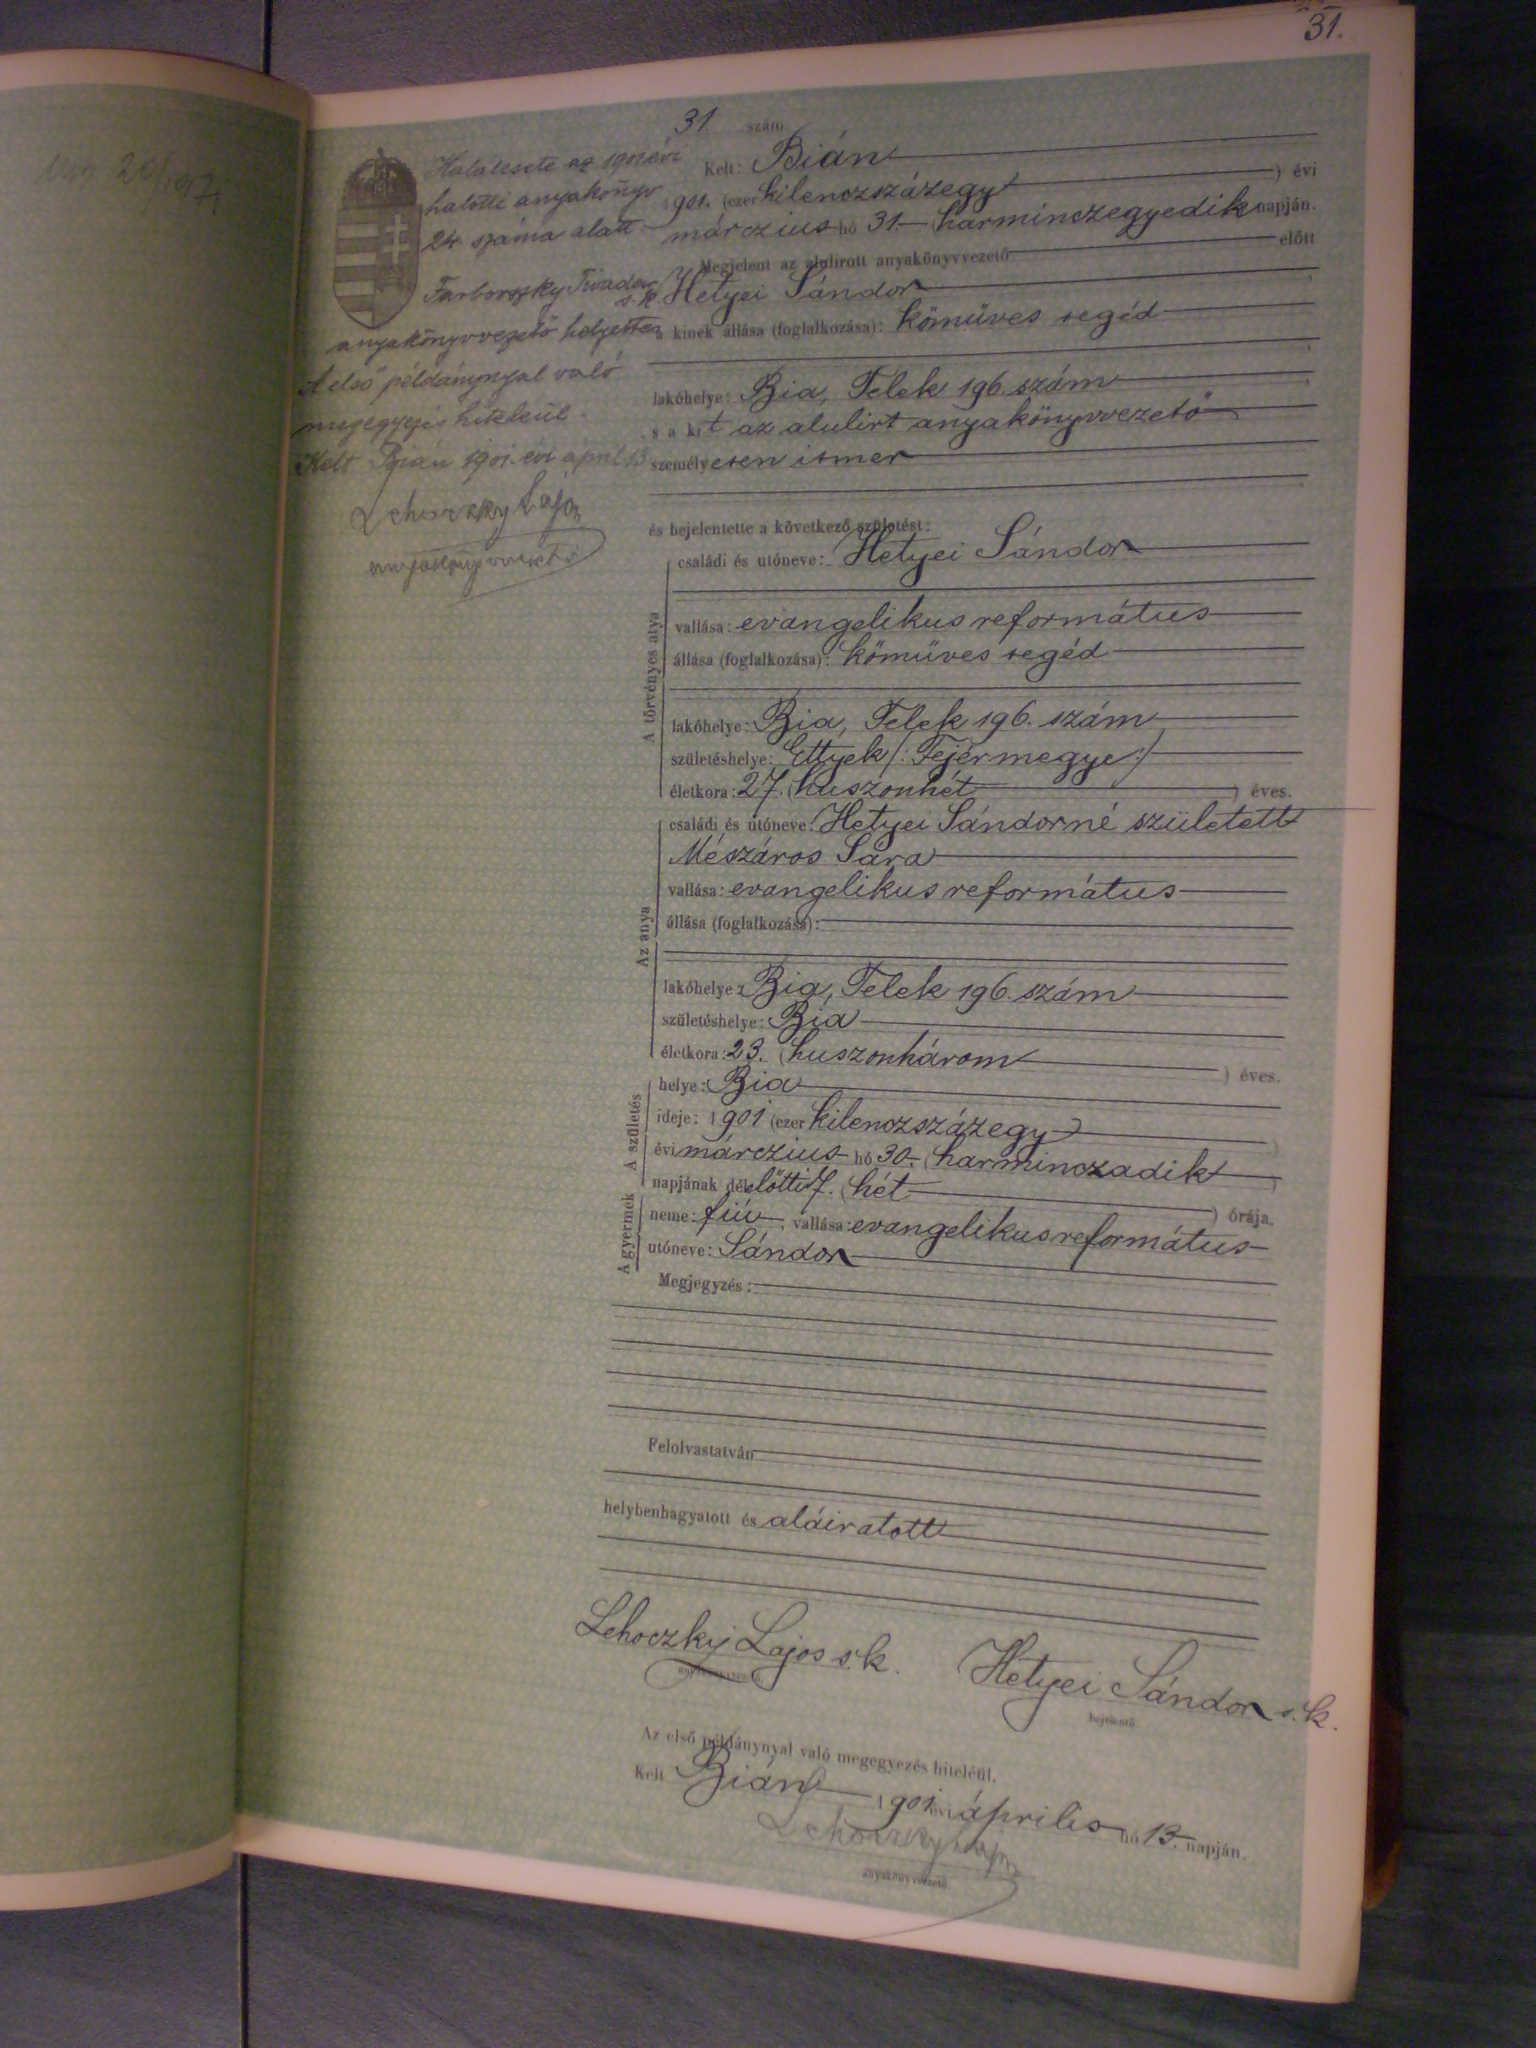 31.
31 szám.
Kelt: Bián
1901. (ezer kilenczszázegy ) évi
márczius hó 31. (harminczegyedik napján.
Megjelent az alulirott anyakönyvvezető előtt
Hetyei Sándor
a kinek állása (foglalkozása): kőmüves segéd
lakóhelye: Bia, Telek 196. szám
s a kit az alulirt anyakönyvvezető
személyesen ismer
és bejelentette a következő születést:
A törvényes atya
családi és utóneve: Hetyei Sándor
vallása: evangelikus református
állása (foglalkozása): kőmüves segéd
lakóhelye: Bia, Telek 196. szám
születéshelye: Ettyek /: Fejérmegye :/
életkora: 27. (huszonhét ) éves.
Az anya
családi és utóneve: Hetyei Sándorné született
Mészáros Sára
vallása: evangelikus református
állása (foglalkozása):
lakóhelye: Bia, Telek 196. szám
születéshelye: Bia
életkora: 23. (huszonhárom ) éves.
A születés
helye: Bia
ideje: 1901 (ezer kilenczszázegy )
évi márczius hó 30. (harminczadik )
napjának délelőtti 7. (hét ) órája.
A gyermek
neme: fiú, vallása: evangelikus református
utóneve: Sándor
Megjegyzés:
Felolvastatván
helybenhagyatott és aláiratott
Lehoczky Lajos s.k. Hetyei Sándor s.k.
anyakönyvvezető. bejelentő.
Az első példánynyal való megegyezés hiteléül.
Kelt Bián 1901 évi április hó 13. napján.
Lehoczky Lajos
anyakönyvvezető
Halálesete az 1901 évi
halotti anyakönyv
24. száma alatt
Tivadar
s.k.
anyakönyvvezető helyettes
A első példánynyal való
megegyezés hiteléül.
Kelt Bián 1901. évi april 13
Lehoczky Lajos
anyakönyvvezető